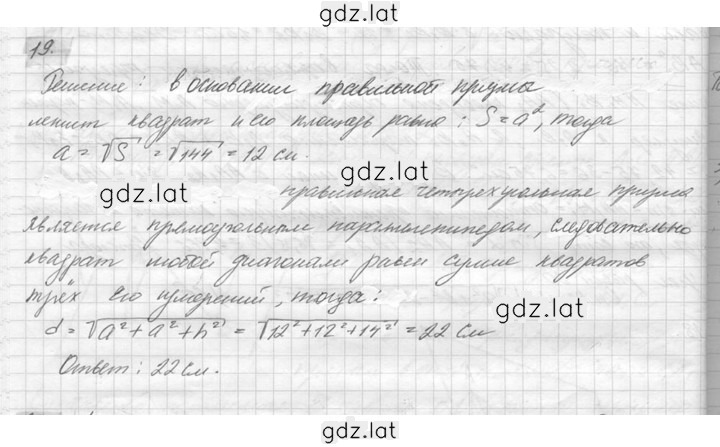 gdz.lat
19.
Решение: в основании правильной призмы
лежит квадрат и его площадь равна: S = a², тогда
a = √S = √144 = 12 см.
gdz.lat
gdz.lat
правильная четырехугольная призма
является прямоугольным параллелепипедом, следовательно
квадрат любой диагонали равен сумме квадратов
трёх его измерений, тогда:
gdz.lat
d = √a²+a²+h² = √12²+12²+14² = 22 см
Ответ: 22 см.
gdz.lat